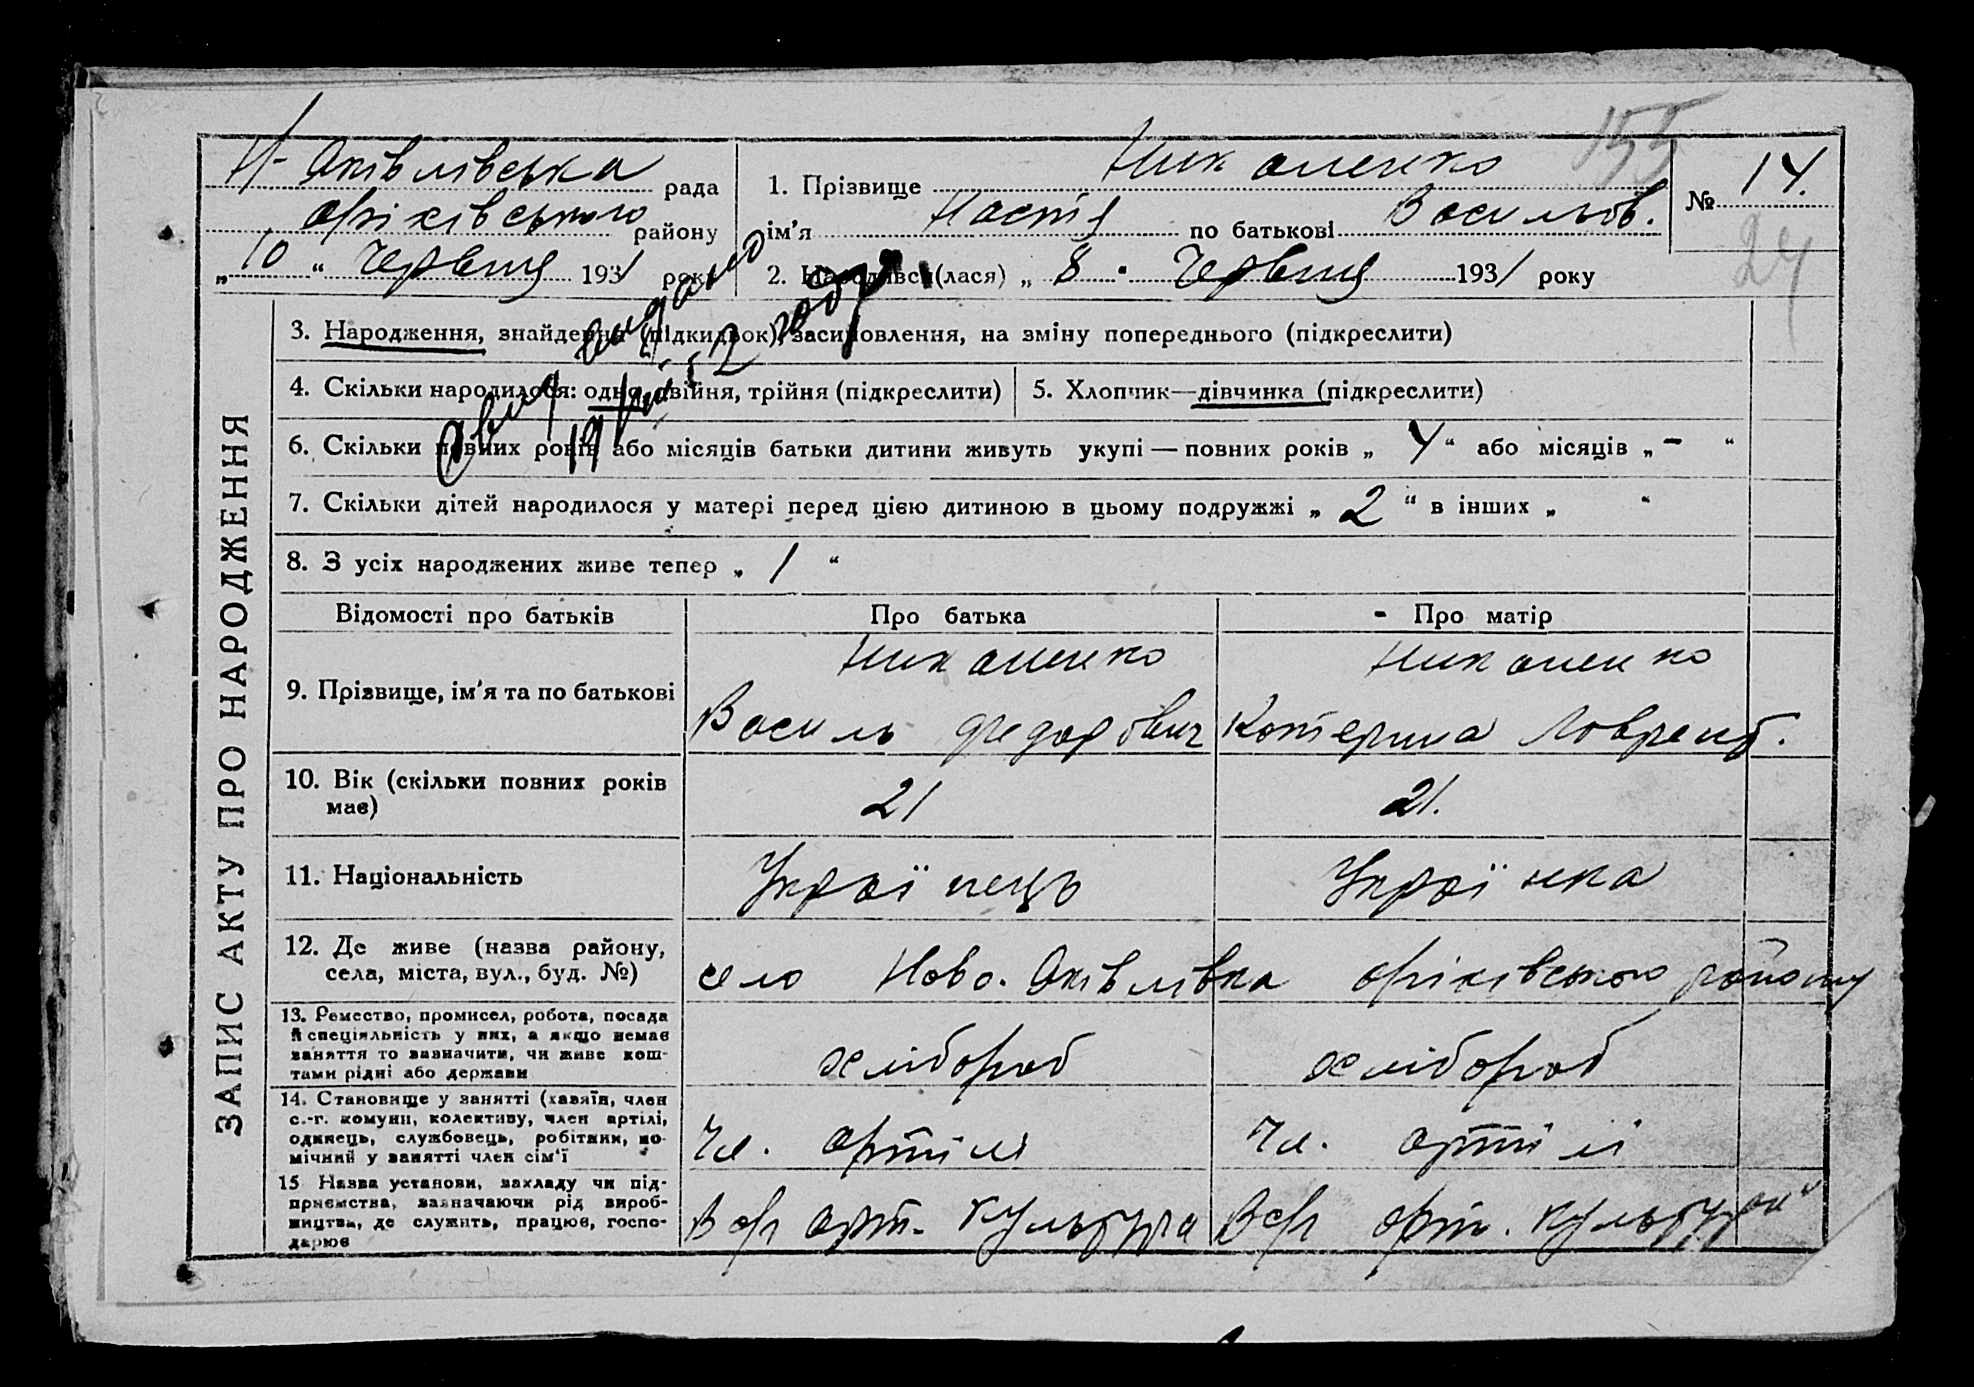 155
Н-Яківлівська рада
Оріхівського району
„ 10 “ Червня 1931 року
1. Прізвище Никоненко
ім'я Настя по батькові Васильов.
2. Народився(лася) „ 8 “ Червня 1931 року
№ 14.
24
ЗАПИС АКТУ ПРО НАРОДЖЕННЯ
3. Народження, знайдення (підкидьок), засиновлення, на зміну попереднього (підкреслити)
4. Скільки народилося: одно, двійня, трійня (підкреслити)
5. Хлопчик—дівчинка (підкреслити)
6. Скільки повних років або місяців батьки дитини живуть укупі — повних років „ 4 “ або місяців „ - “
7. Скільки дітей народилося у матері перед цією дитиною в цьому подружжі „ 2 “ в інших „ “
8. З усіх народжених живе тепер „ 1 “
Відомості про батьків
Про батька
Про матір
9. Прізвище, ім'я та по батькові
Никоненко
Василь Федорович
Никоненко
Катерина Лаврент.
10. Вік (скільки повних років
має)
21
21.
11. Національність
Українець
Українка
12. Де живе (назва району,
села, міста, вул., буд. №)
село Ново-Яківлівка Оріхівського району
13. Ремество, промисел, робота, посада
й спеціяльність у них, а якщо немає
заняття то зазначити, чи живе кош-
тами рідні або держави
хлібороб
хлібороб
14. Становище у занятті (хазяїн, член
с.-г. комуни, колективу, член артілі,
одинець, службовець, робітник, по-
мічний у занятті член сім'ї
Чл. артілі
Чл. артілі
15 Назва установи, закладу чи під-
приємства, зазначаючи рід вироб-
ництва, де служить, працює, госпо-
дарює
арт. культура
арт. культура